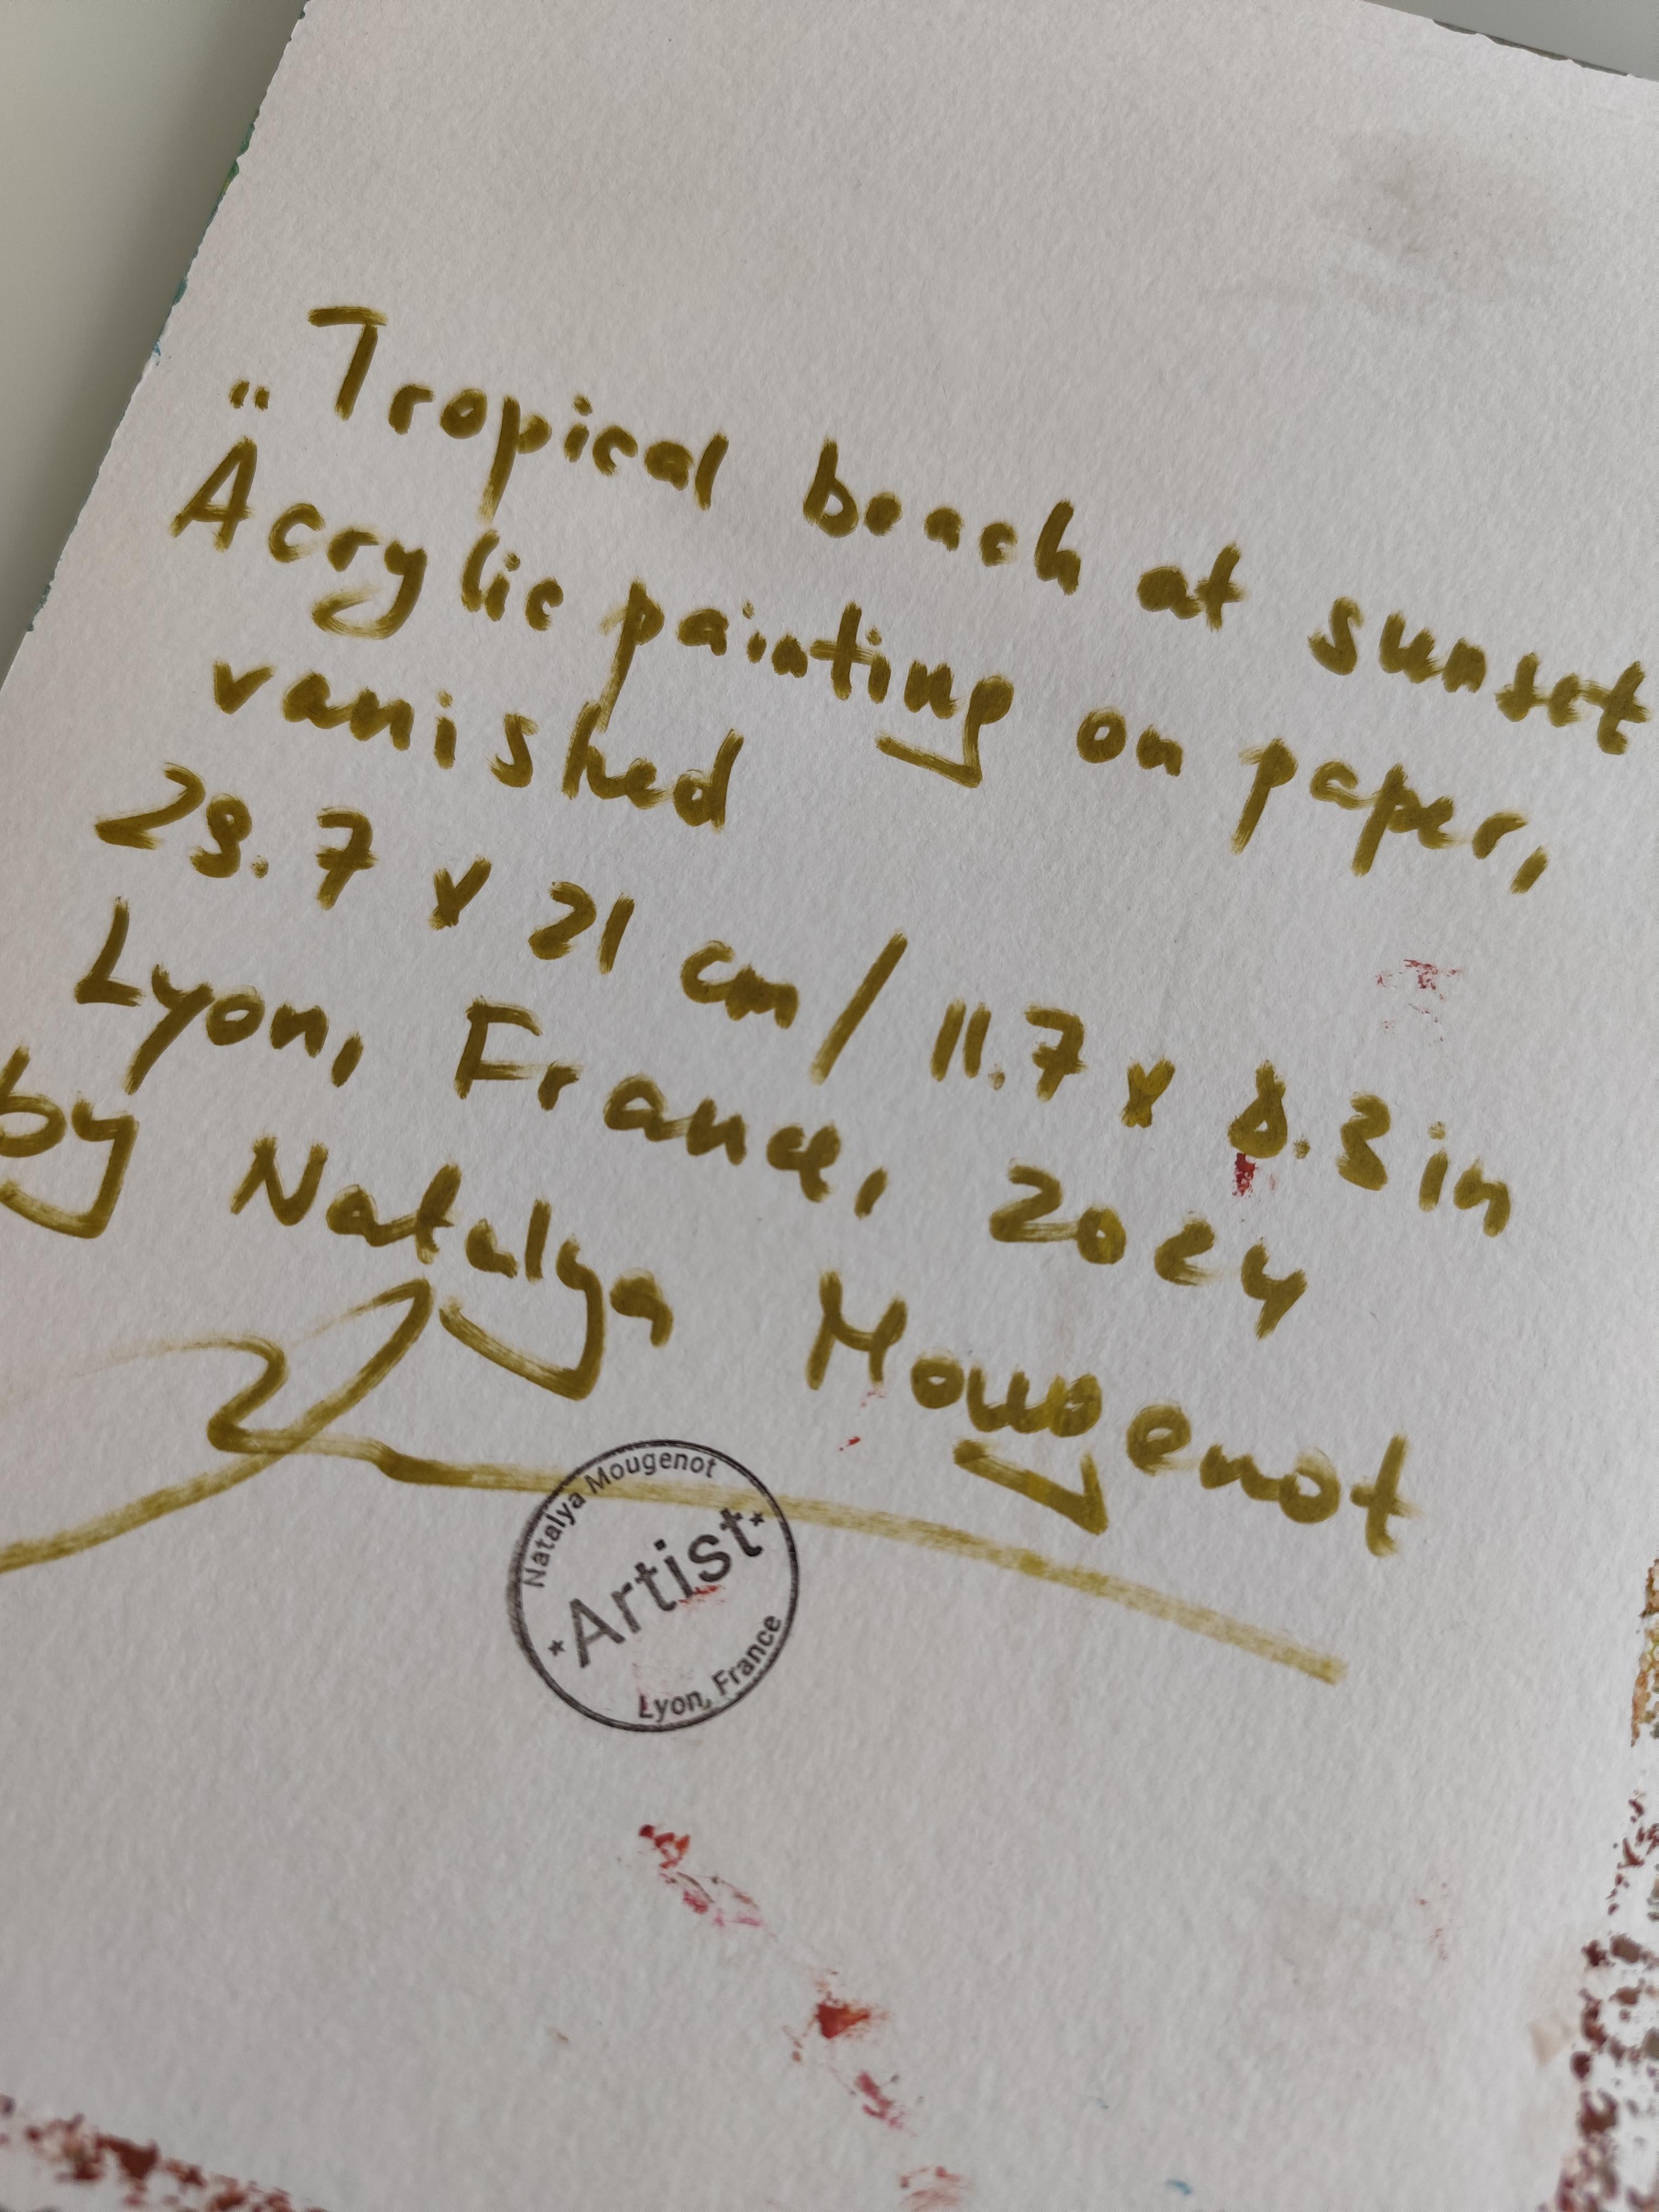 „Tropical beach at sunset
Acrylic painting on paper,
vanished
29.7 x 21 cm / 11.7 x 8.3 in
Lyon, France, 2024
by Natalya Mougenot
Natalya Mougenot
*Artist*
Lyon, France